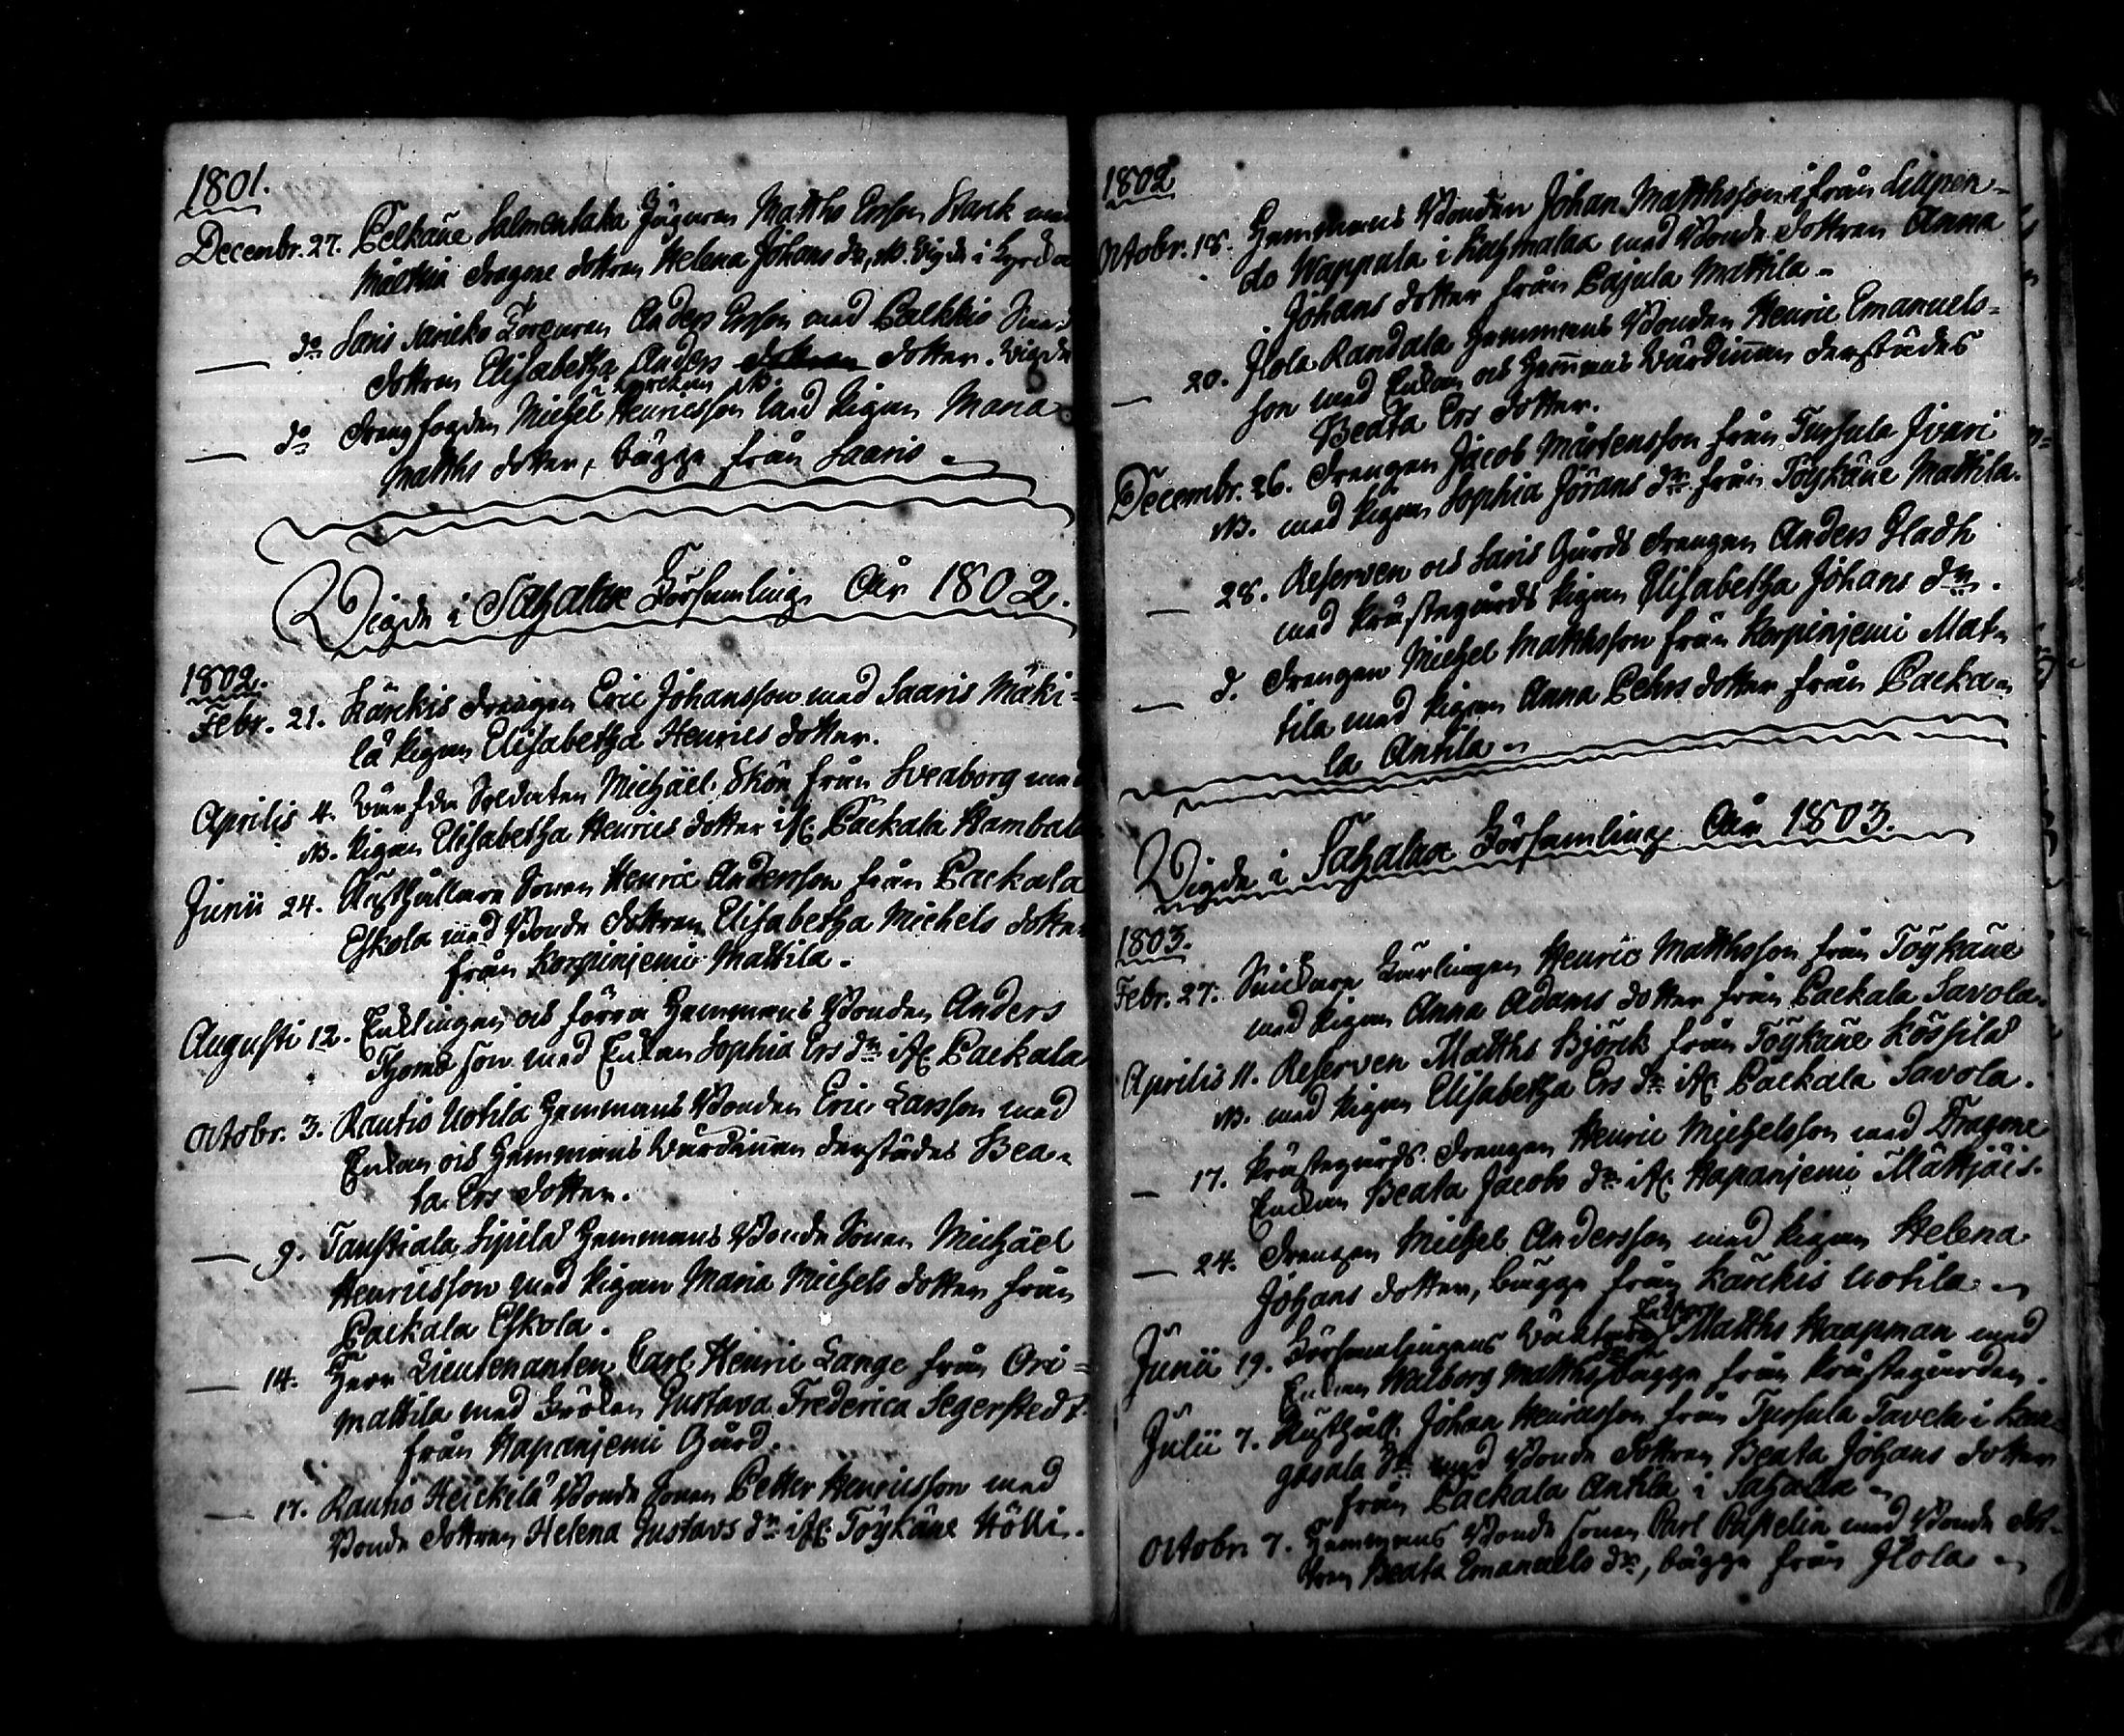 1801.
Decembr. 27. Pelkäne Salmentaka Jägaren Matths Ersson Starck med
Mälkiä Dragone dottren Helena Johans dr, NB. Vigde i Kyrckan
— do Saris Jaricko Torparen Anders Ersson med Palkkis
dottren Elisabetha Anders dotter. Vigde
i Kyrckan NB.
— do Dreng fogden Michel Henricsson med Pigan Maria
Matths dotter, bägge från Saaris
Vigde i Sahalax Församling Åhr 1802.
1802.
Febr. 21. Kärckis Drengen Eric Johansson med Saaris Mäki-
lä Pigan Elisabetha Henrics dotter.
Aprilis 4. Soldaten Michael Skön från Sveaborg med
NB. Pigan Elisabetha Henrics dotter ifr. Packala Rambala
Junii 24. Rusthållare Sonen Henric Andersson från Packala
Eskola med Bonde dottren Elisabetha Michels dotter
från Korpinjemi Mattila.
Augusti 12. Enklingen och förra Hemmans Bonden Anders
Thomæson med Enkan Sophia Ers dr ifr. Packala
Octobr. 3. Rautio Uotila Hemmans Bonden Eric Larsson med
Enkan och Hemmans Värdinnan derstädes Bea-
ta Ers dotter.
— 9. Taustiala Sipilä Hemmans Bonde Sonen Michael
Henricsson med Pigan Maria Michels dotter från
Packala Eskola.
— 14. Herr Lieutenanten Carl Henric Lange från Ori-
mattila med Fröken Gustava Frederica Segerstedt
från Hapanjemi Gård.
— 17. Rautio Heickilä Bonde Sonen Petter Henricsson med
Bonde dottren Helena Gustavs dr ifr. Töykäne Hölli.
1802
Octobr. 18. Hemmans Bonden Johan Matthsson ifrån Liupen-
do Wappula i Kuhmalax med Bonde dottren Anna
Johans dotter från Pajula Mattila
— 20. Ilola Randala Hemmans Bonden Henric Emanuels-
son med Enkan och Hemmans Värdinnan derstädes
Beata Ers dotter.
Decembr. 26. Drengen Jacob Mårtensson från Tursula Jvari
NB. med Pigan Sophia Jörans dr från Töykäne Mattila.
— 28. Reserven och Saris Gårds Drengen Anders Gladh
med Prästegårds Pigan Elisabetha Johans dr.
— d. Drengen Michel Matthsson från Korpinjemi Mat-
tila med Pigan Anna Pehrs dotter från Packa-
la Antila
Vigde i Sahalax Församling Åhr 1803.
1803.
Febr. 27. Henric Matthsson från Töykäne
med Pigan Anna Adams dotter från Packala Savola
Aprilis 11. Reserven Matths Björck från Töykäne Kössilä
NB. med Pigan Elisabetha Ers dr ifr. Packala Savola.
— 17. Prästegårds Drengen Henric Michelsson med Dragone
Enckan Beata Jacobs dr ifr. Hapanjemi Mattjäis.
— 24. Drengen Michel Andersson med Pigan Helena
Johans dotter, bägge från Kärckis Uotila
Junii 19. Församlingens Matths Haapman med
Enkan Walborg Matths dr bägge från Prästegården.
Julii 7. Rusthåll. Johan Henricsson från Tursula Tavela i Kan-
gasala Sn med Bonde dottren Beata Johans dotter
från Packala Antila i Sahalax
Octobr. 7. Hemmans Bonde sonen Carl Castelin med Bonde dot-
tren Beata Emanuels dr, bägge från Ilola